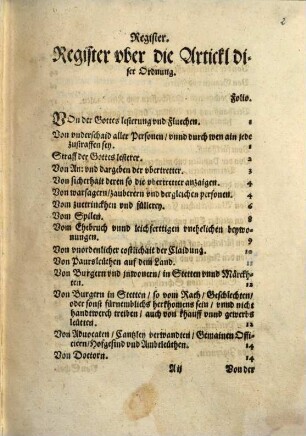 2
Register.
Register vber die Artickl di-
ser Ordnung.
Folio.
Von der Gottes lesterung vnd Fluechen. 1
Von vnderschaid aller Personen / vnnd durch wen ain jede
zustraffen sey. 1
Straff der Gottes lesterer. 2
Von Am: vnd dargeben der vbertretter. 3
Von sicherhait deren so die vbertretter anzaigen. 4
Von warsagern / zauberern vnd dergleichen personen. 4
Von zuetrinckhen vnd füllerey. 6
Vom Spilen. 8
Vom Ehebruch vnnd leichfertigen vnehelichen beywo-
nungen. 9
Von vnordenlicher costlichait der Claidung. 10
Von Paursleüthen auf dem Land. 11
Von Burgern vnd jnwonern / in Stetten vnnd Märckh-
ten. 12
Von Burgern in Stetten / so vom Rath / Geschlechten /
oder sonst fürnemblichs herkhomens sein / vnnd nicht
handtwerch treiben / auch von khauff vnnd gewerbs
leütten. 12
Von Aduocaten / Cantzley verwandten / Gemainen Offi-
cieren / Hofgesind vnd Ambtleüthen. 14
Von Doctorn. 14
A ij Von der